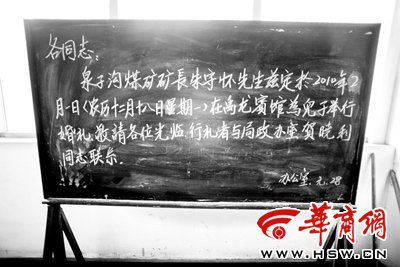 各同志:
泉子沟煤矿矿长朱守怀先生兹定於2010年2
月1日(农历十二月十八日星期一)在禹龙宾馆为儿子举行
婚礼敬請各位光临.行礼者与局政办室贺晓利
同志联系.
办公室.元.28
華商網
WWW.HSW.CN